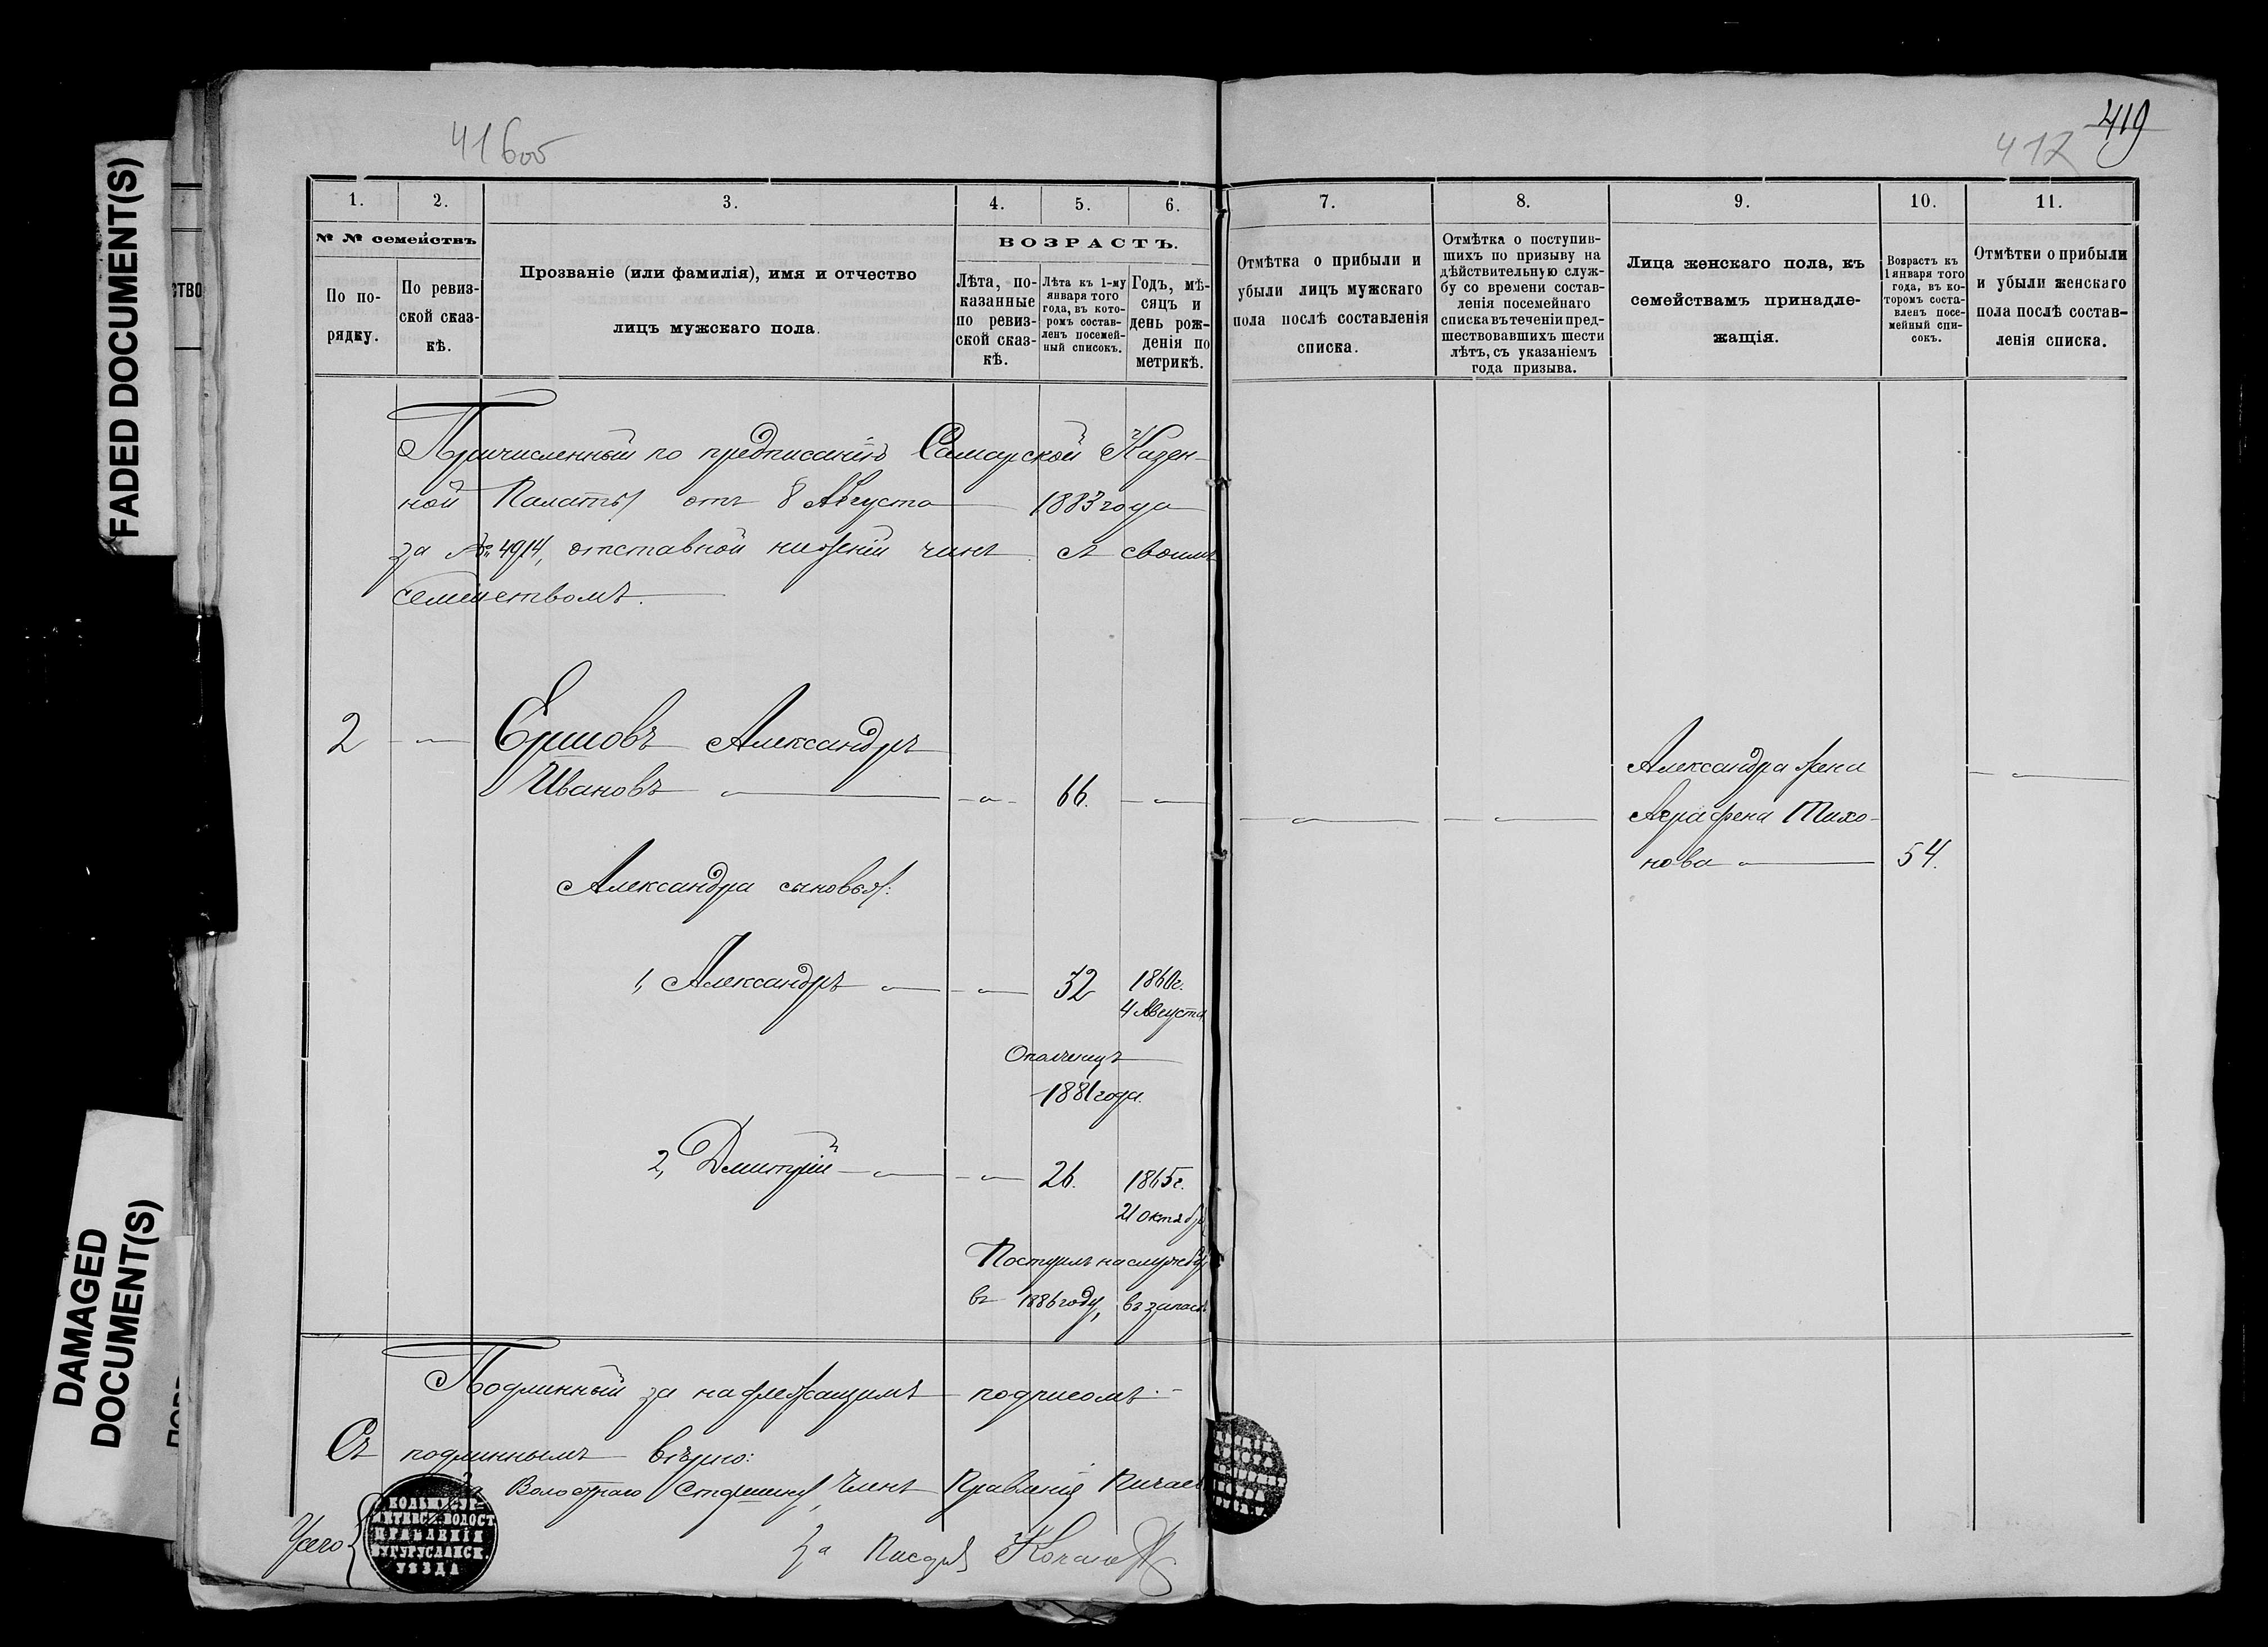 FADED DOCUMENT(S)
DAMAGED
DOCUMENT(S)
СТВО
416 об
417
419
1.
2.
3.
4.
5.
6.
№ № семействъ
ВОЗРАСТЪ.
По по-
рядку.
По ревиз-
ской сказ-
кѣ.
Прозваніе (или фамилія), имя и отчество
лицъ мужскаго пола.
Лѣта, по-
казанные
по ревиз-
ской сказ-
кѣ.
Лѣта къ 1-му
января того
года, въ кото-
ромъ состав-
ленъ посемей-
ный списокъ.
Годъ, мѣ-
сяцъ и
день рож-
денія по
метрикѣ.
7.
8.
9.
10.
11.
Отмѣтка о прибыли и
убыли лицъ мужскаго
пола послѣ составленія
списка.
Отмѣтка о поступив-
шихъ по призыву на
дѣйствительную служ-
бу со времени состав-
ленія посемейнаго
списка въ теченіи пред-
шествовавшихъ шести
лѣтъ, съ указаніемъ
года призыва.
Лица женскаго пола, къ
семействамъ принадле-
жащія.
Возрастъ къ
1 января того
года, въ ко-
торомъ соста-
вленъ посе-
мейный спи-
сокъ.
Отмѣтки о прибыли
и убыли женскаго
пола послѣ состав-
ленія списка.
Причисленный по предписанію Самарской Казен-
ной Палаты отъ 8 Августа 1883 года
за № 4914, отставной нижній чинъ съ своимъ
семействомъ.
2 Ершовъ Александръ
Ивановъ 66.
Александра жена
Аграфена Тихо-
нова 54.
Александра сыновья:
1, Александръ 32 1860г.
4 Августа
Ополченецъ
1881 года.
2, Дмитрій 26. 1865г.
21 Октября
Поступилъ на службу
въ 1886 году, въ запасѣ
Подлинный за надлежащимъ подписомъ.
Съ подлиннымъ вѣрно:
За Волостнаго Старшину, Членъ Правленія Пичаев
За Писаря
КОЛЬШЕСУР-
ВОЛОСТ.
ПРАВЛЕНІЯ
БУГУРУСЛАНСК.
УѢЗДА